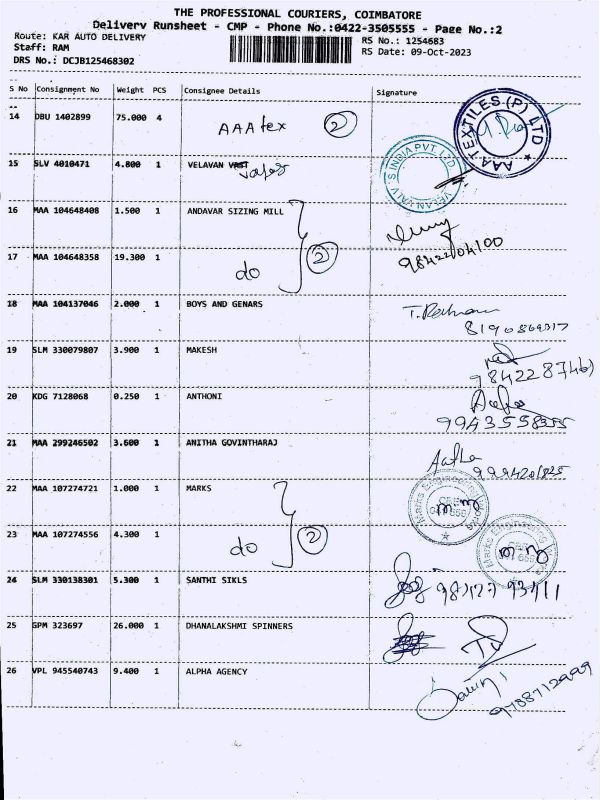 THE PROFESSIONAL COURIERS, COIMBATORE
Delivery Runsheet - CMP - Phone No.:0422-3505555 - Page No.:2
Route: KAR AUTO DELIVERY
RS No.: 1254683
Staff: RAM
RS Date: 09-Oct-2023
DRS No.: DCJB125468302
S No Consignment No Weight PCS Consignee Details Signature
14 DBU 1402899 75.000 4 AAA tex 2
AAA TEXTILES (P) LTD
15 SLV 4010471 4.800 1 VELAVAN
16 MAA 104648408 1.500 1 ANDAVAR SIZING MILL
17 MAA 104648358 19.300 1 do 2
9842204100
18 MAA 104137046 2.000 1 BOYS AND GENARS
19 SLM 330079807 3.900 1 MAKESH
20 KDG 7128068 0.250 1 ANTHONI
21 MAA 299246502 3.600 1 ANITHA GOVINTHARAJ
22 MAA 107274721 1.000 1 MARKS
23 MAA 107274556 4.300 1 do 2
24 SLM 330138301 5.300 1 SANTHI SIKLS
25 GPM 323697 26.000 1 DHANALAKSHMI SPINNERS
26 VPL 945540743 9.400 1 ALPHA AGENCY
9788712999